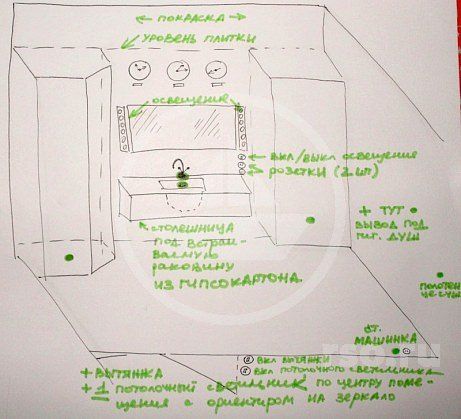 ПОКРАСКА
УРОВЕНЬ ПЛИТКИ
ОСВЕЩЕНИЕ
ВКЛ/ВЫКЛ ОСВЕЩЕНИЕ
РОЗЕТКИ (2 ШТ)
СТОЛЕШНИЦА
ПОД ВСТРАИ-
ВАЕМУЮ
РАКОВИНУ
ИЗ ГИПСОКАРТОНА
+ ТУТ
ВЫВОД ПОД
ГИГ. ДУШ
ПОЛОТЕН
ЦЕСУШ
СТ.
МАШИНКА
ВКЛ ВЫТЯЖКИ
ВКЛ ПОТОЛОЧНОГО СВЕТИЛЬНИКА
+ ВЫТЯЖКА
+ 1 ПОТОЛОЧНЫЙ СВЕТИЛЬНИК ПО ЦЕНТРУ ПОМЕ-
ЩЕНИЯ С ОРИЕНТИРОМ НА ЗЕРКАЛО